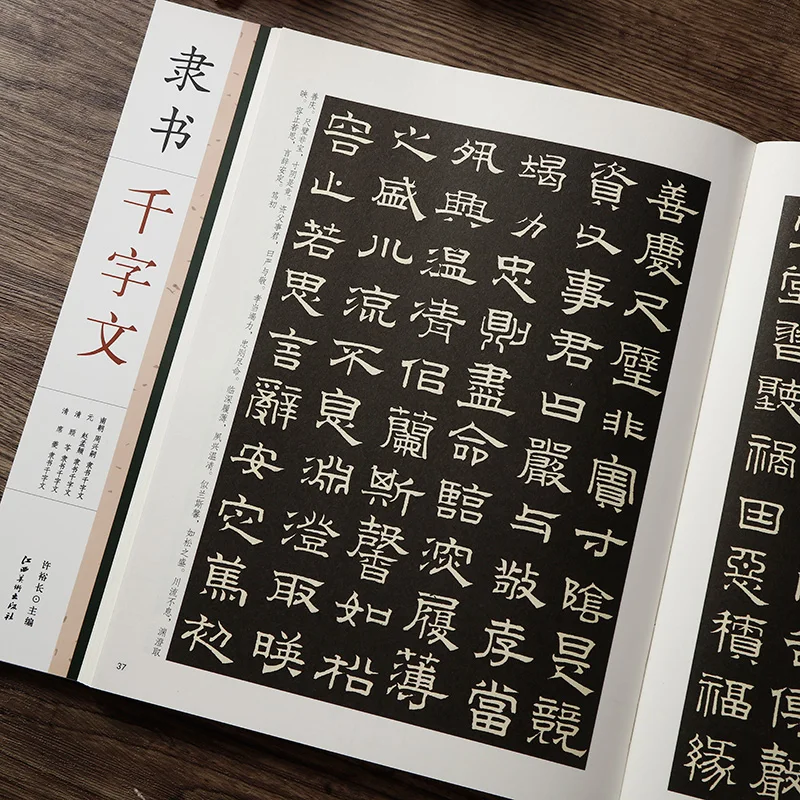 隶书
千字文
南朝 周兴嗣 隶书千字文
元 赵孟頫 隶书千字文
清 顾苓 隶书千字文
清 席夔 隶书千字文
许裕长⊙主编
江西美术出版社
善庆。尺璧非宝,寸阴是竞。资父事君,曰严与敬。孝当竭力,忠则尽命。临深履薄,夙兴温清。似兰斯馨,如松之盛。川流不息,渊澄取
映。容止若思,言辞安定。笃初
善慶尺璧非寶寸陰是競
資父事君曰嚴与敬孝當
竭力忠則盡命臨深履薄
夙興温清佀蘭斯馨如松
之盛川流不息淵澄取暎
容止若思言辭安定篤初
37
聲
堂習聽禍因惡積福緣